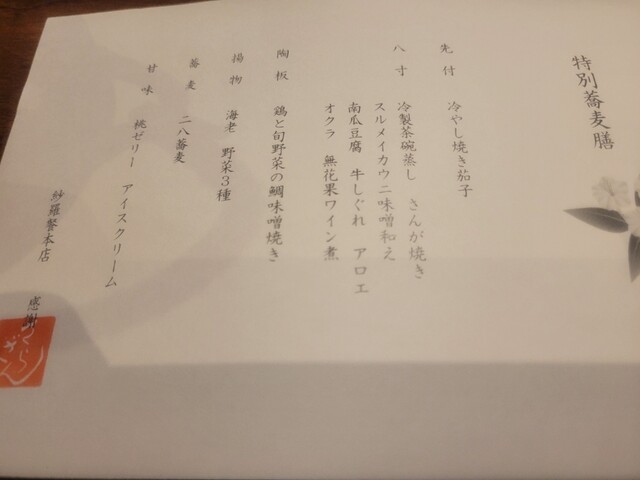 特別蕎麦膳
先付 冷やし焼き茄子
八寸 冷製茶碗蒸し さんが焼き
スルメイカウニ味噌和え
南瓜豆腐 牛しぐれ アロエ
オクラ 無花果ワイン煮
陶板 鶏と旬野菜の鯛味噌焼き
揚物 海老 野菜3種
蕎麦 二八蕎麦
甘味 桃ゼリー アイスクリーム
紗羅餐本店 感謝
さらざん